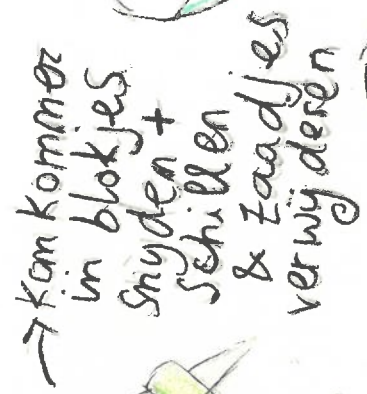 → Komkommer
in blokjes
snyden +
schillen
& zaadjes
verwijderen